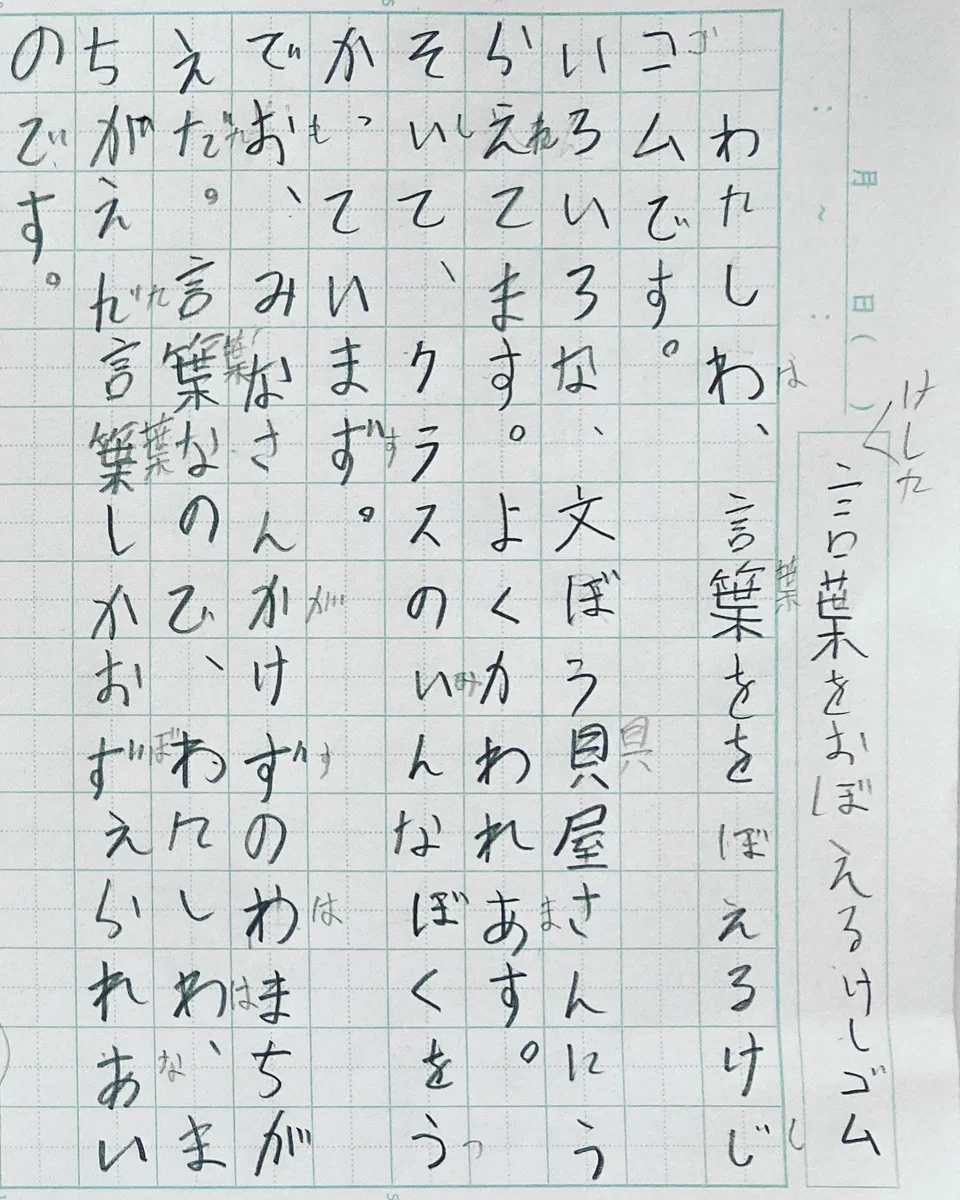 月 日( )
けした
言葉をおぼえるけしゴム
は 葉 し
わたしわ、言葉ををぼえるけじ
ゴ
コムです。
具
いろいろな、文ぼう貝屋さんにう
れ ま
らえてます。よくかわれあす。
し み っ
そいてて、クラスのいんなぼくをう
す
かっていまず。
も が す は
でお、みなさんかけずのわまちが
葉 は
えだ。言葉なので、わたしわ、ま
た 葉 ぼ な
ちがえだ言葉しかおずえられあい
のです。